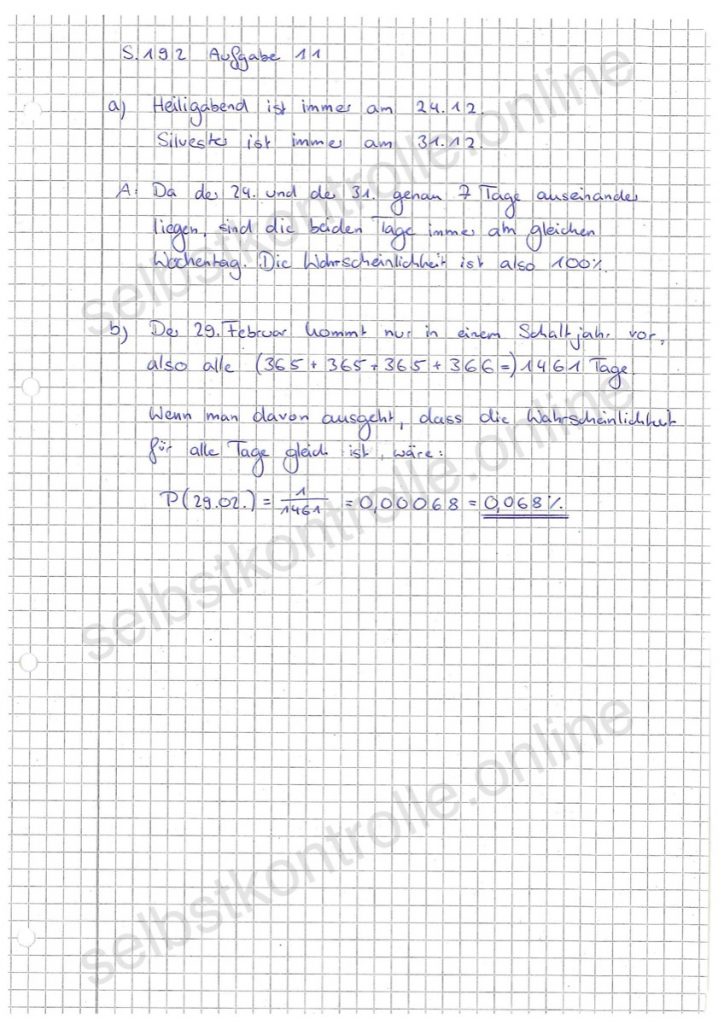 S. 192 Aufgabe 11
a) Heiligabend ist immer am 24.12.
Silvester ist immer am 31.12.
A: Da der 24. und der 31. genau 7 Tage auseinander
liegen, sind die beiden Tage immer am gleichen
Wochentag. Die Wahrscheinlichkeit ist also 100%.
b) Der 29. Februar kommt nur in einem Schaltjahr vor,
also alle (365 + 365 + 365 + 366 =) 1461 Tage.
Wenn man davon ausgeht, dass die Wahrscheinlichkeit
für alle Tage gleich ist, wäre:
P(29.02.) = 1/1461 = 0,00068 = 0,068%
selbstkontrolle.online
selbstkontrolle.online
selbstkontrolle.online